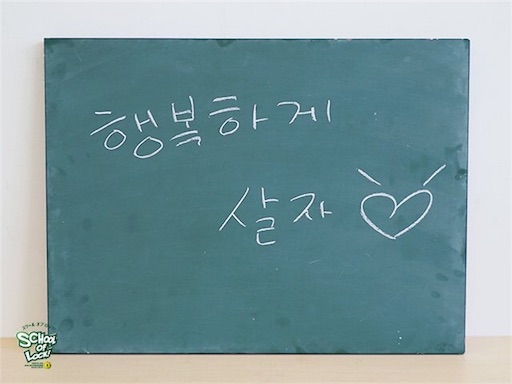 행복하게
살자
SCHOOL
OF
LOCK!